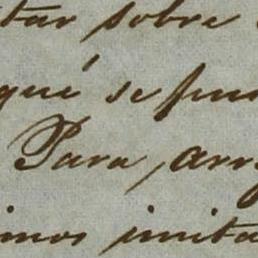 tar sobre
qué se fun
Para, arr
imos imita